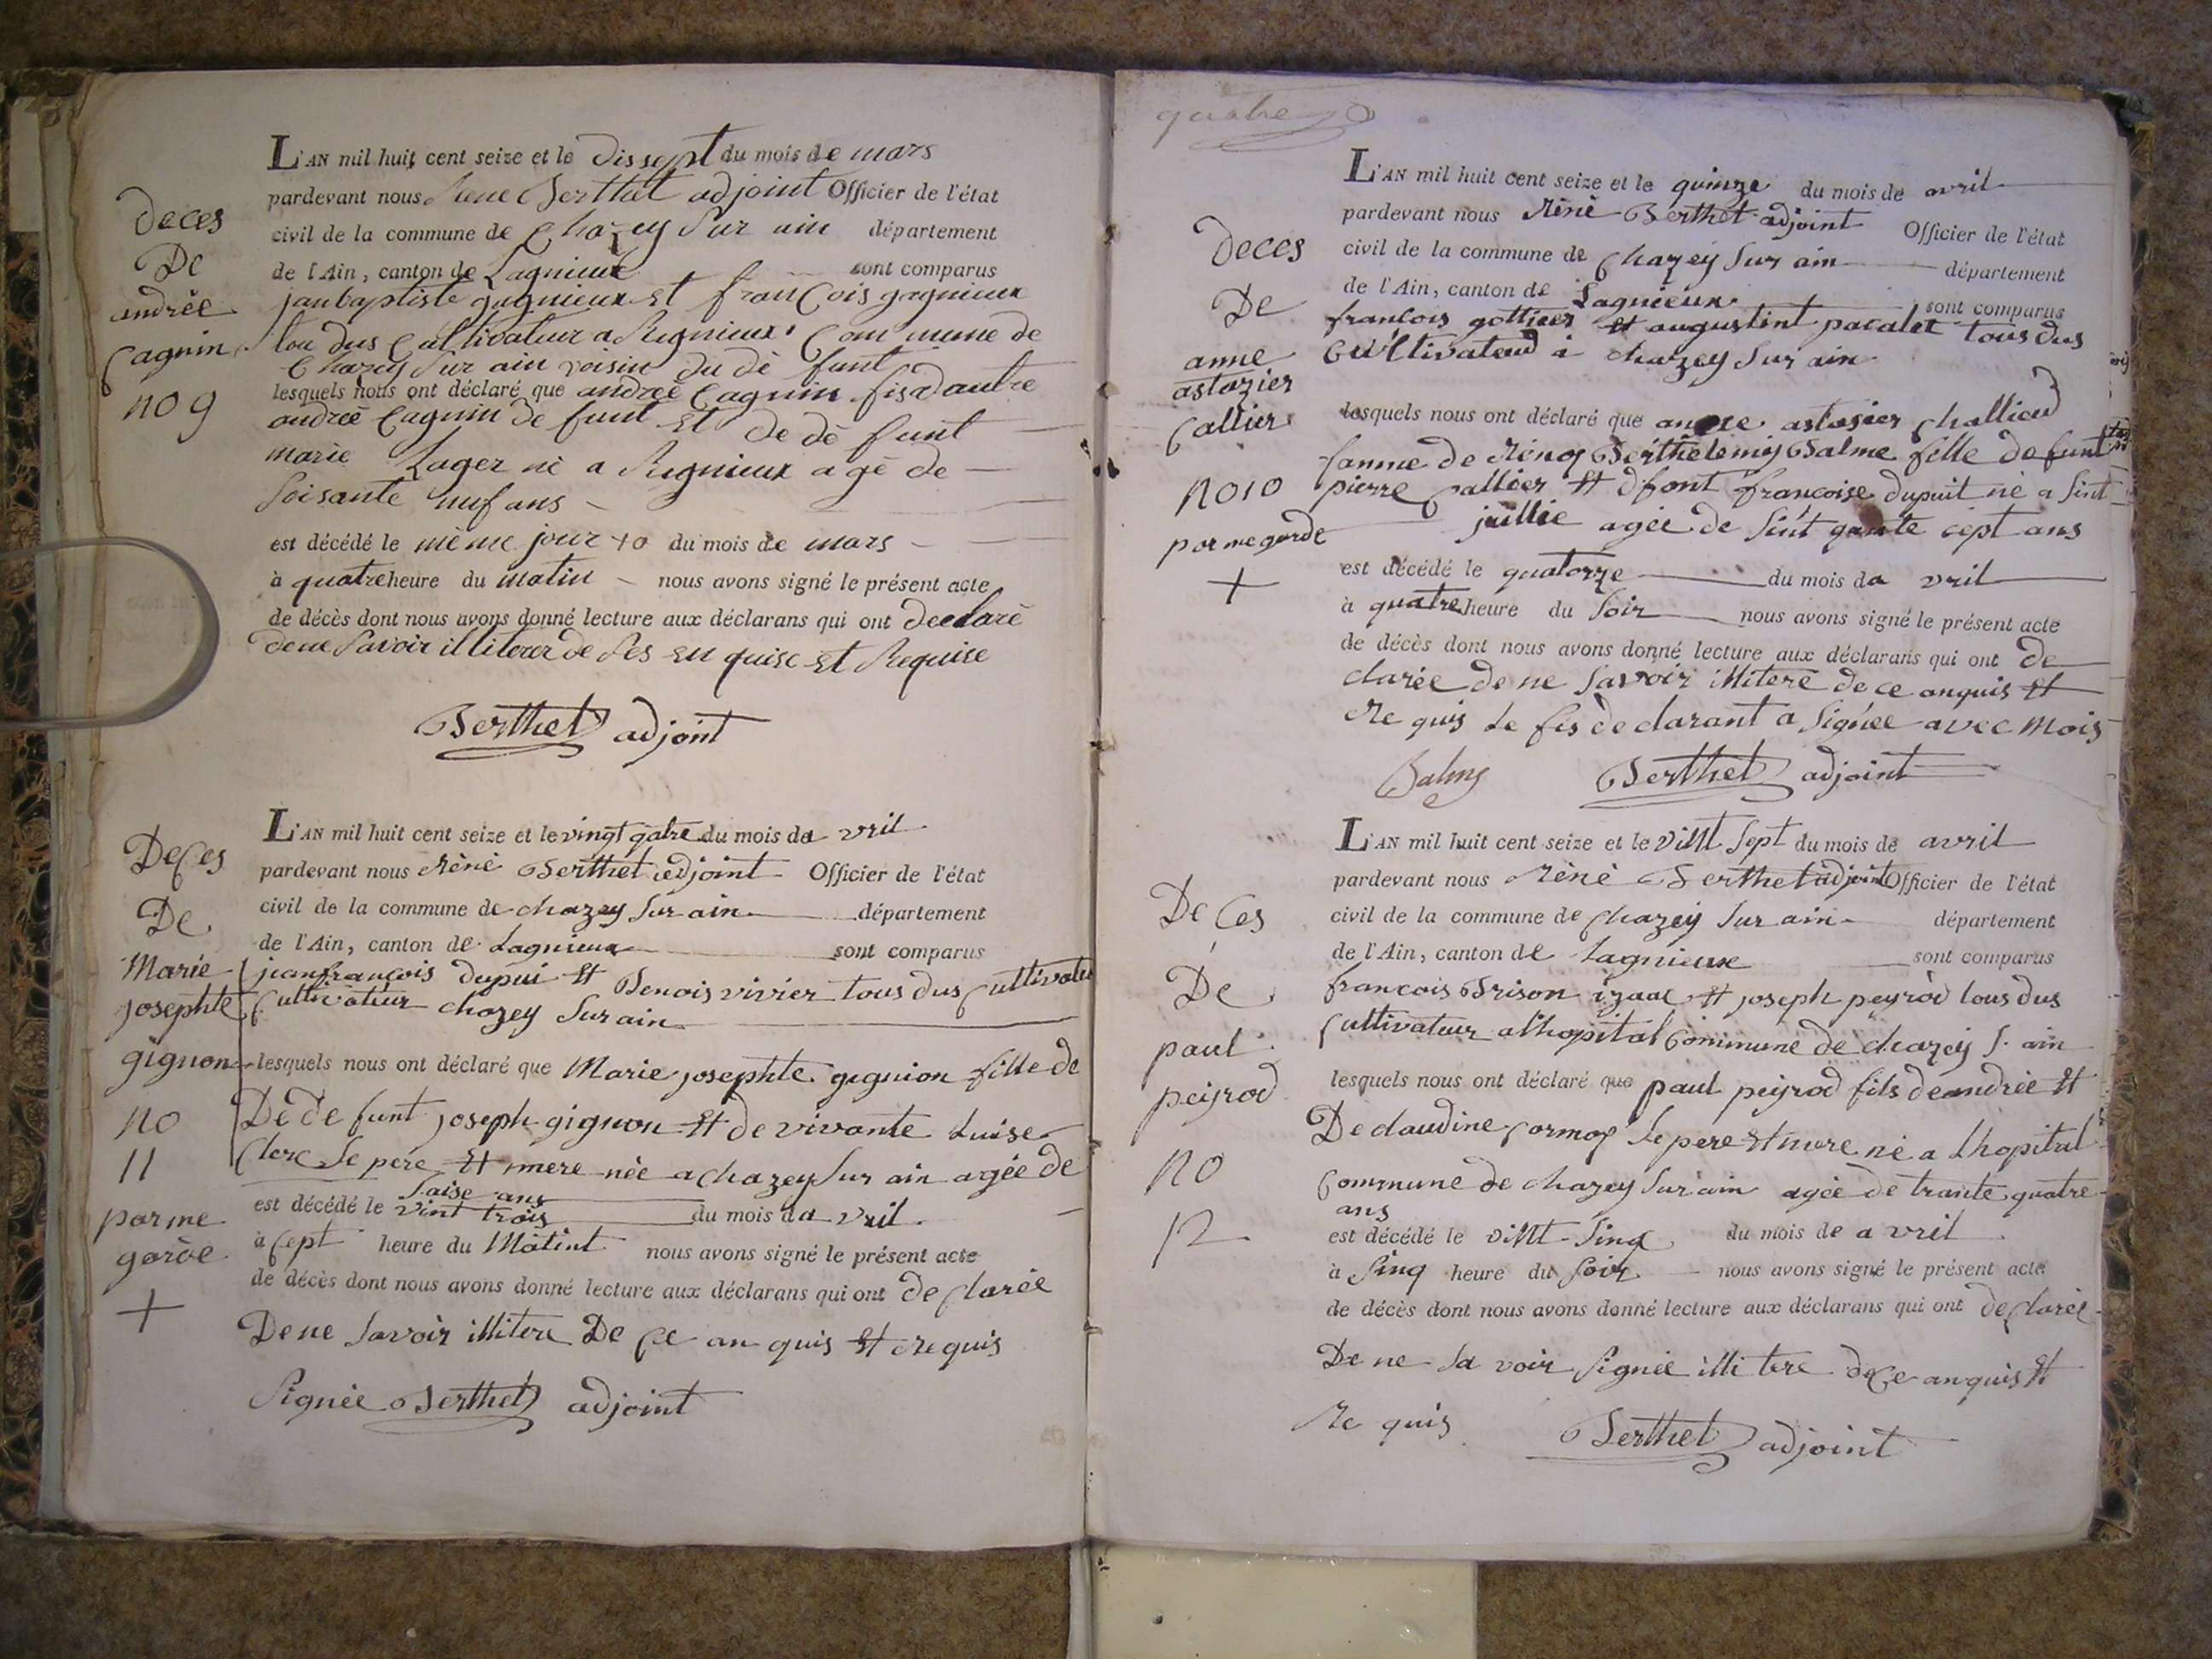 Deces
De
andrée
Cagnin
no 9
L'AN mil huit cent seize et le dissept du mois de mars
pardevant nous Rene Berthet adjoint Officier de l'état
civil de la commune de Chazey Sur ain département
de l'Ain, canton de Lagnieux sont comparus
janbaptiste gagnieux et françois gagnieux
tou dus Cultivateur a Rignieux Commune de
Chazey Sur ain voisin du dè funt
lesquels nous ont déclaré que andreé Cagnin fis d'autre
andreé Cagnin de funt et de dè funt
marie Lager nè a Rignieux agè de
soisante nuf ans
est décédé le mème jour du mois de mars
à quatre heure du matin nous avons signé le présent acte
de décès dont nous avons donné lecture aux déclarans qui ont declarè
de ne Savoir illiterer de Ses en quise et Requise
Berthet adjoint
Deces
De
Marie
josephte
gignon
no
11
par me
garde
+
L'AN mil huit cent seize et le vingt qatre du mois da vril
pardevant nous Rènè Berthet adjoint Officier de l'état
civil de la commune de chazey Sur ain département
de l'Ain, canton de Lagnieux sont comparus
jeanfrançois dupui et Benois vivier tous dus Cultivate
Cultivateur chazey Sur ain
lesquels nous ont déclaré que Marie josephte gignion fille de
De de funt joseph gignon et de vivante Luise
Clerc Se pere et mere nèe a chazey Sur ain agée de
Saise ans
est décédé le vint trois du mois da vril
à Cept heure du Matint nous avons signé le présent acte
de décès dont nous avons donné lecture aux déclarans qui ont de Clarée
De ne Savoir illitere De Ce an quis et requis
Signée Berthet adjoint
quatre
Deces
De
anne
astazier
Callier
no 10
par me garde
+
L'AN mil huit cent seize et le quinze du mois de avril
pardevant nous Rènè Berthet adjoint Officier de l'état
civil de la commune de Chazey Sur ain département
de l'Ain, canton de Lagnieux sont comparus
francois gottier et augustint pacalet tous dus
Cultivateud à chazey Sur ain
lesquels nous ont déclaré que anne astasier Challieu
famme de Rènoy Berthelemy Balme fille de funt
pierre Callier et dfont françoise dupuit nè a Sint
jullie agèe de Sint qante cept ans
est décédé le quatorze du mois da vril
à quatre heure du Soir nous avons signé le présent acte
de décès dont nous avons donné lecture aux déclarans qui ont de
clarée de ne Savoir illiterè de ce anquis et
Re quis Le fis de clarant a Signée avec mois
Balme Berthet adjoint
De Ces
De
paul
peyrod
no
12
L'AN mil huit cent seize et le vint Sept du mois de avril
pardevant nous Rènè Berthet adjoint Officier de l'état
civil de la commune de Chazey Sur ain département
de l'Ain, canton de Lagnieux sont comparus
francois Brison izaac et joseph peyrod tous dus
Cultivateur a lhopital Commune de chazey S. ain
lesquels nous ont déclaré que paul peyrod fils de andrée et
De claudine Cormoz Se pere et mere nè a Lhopital
Commune de chazey Sur ain agèe de trante quatre
ans
est décédé le vint-Sinq du mois de a vril
à Sinq heure du Soir nous avons signé le présent acte
de décès dont nous avons donné lecture aux déclarans qui ont de Clarèe
De ne Sa voir Signée illi tere de Ce anquis et
Re quis
Berthet adjoint